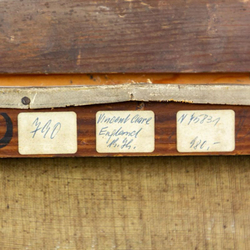 790
Vincent Clare
England
N 45831
400.-